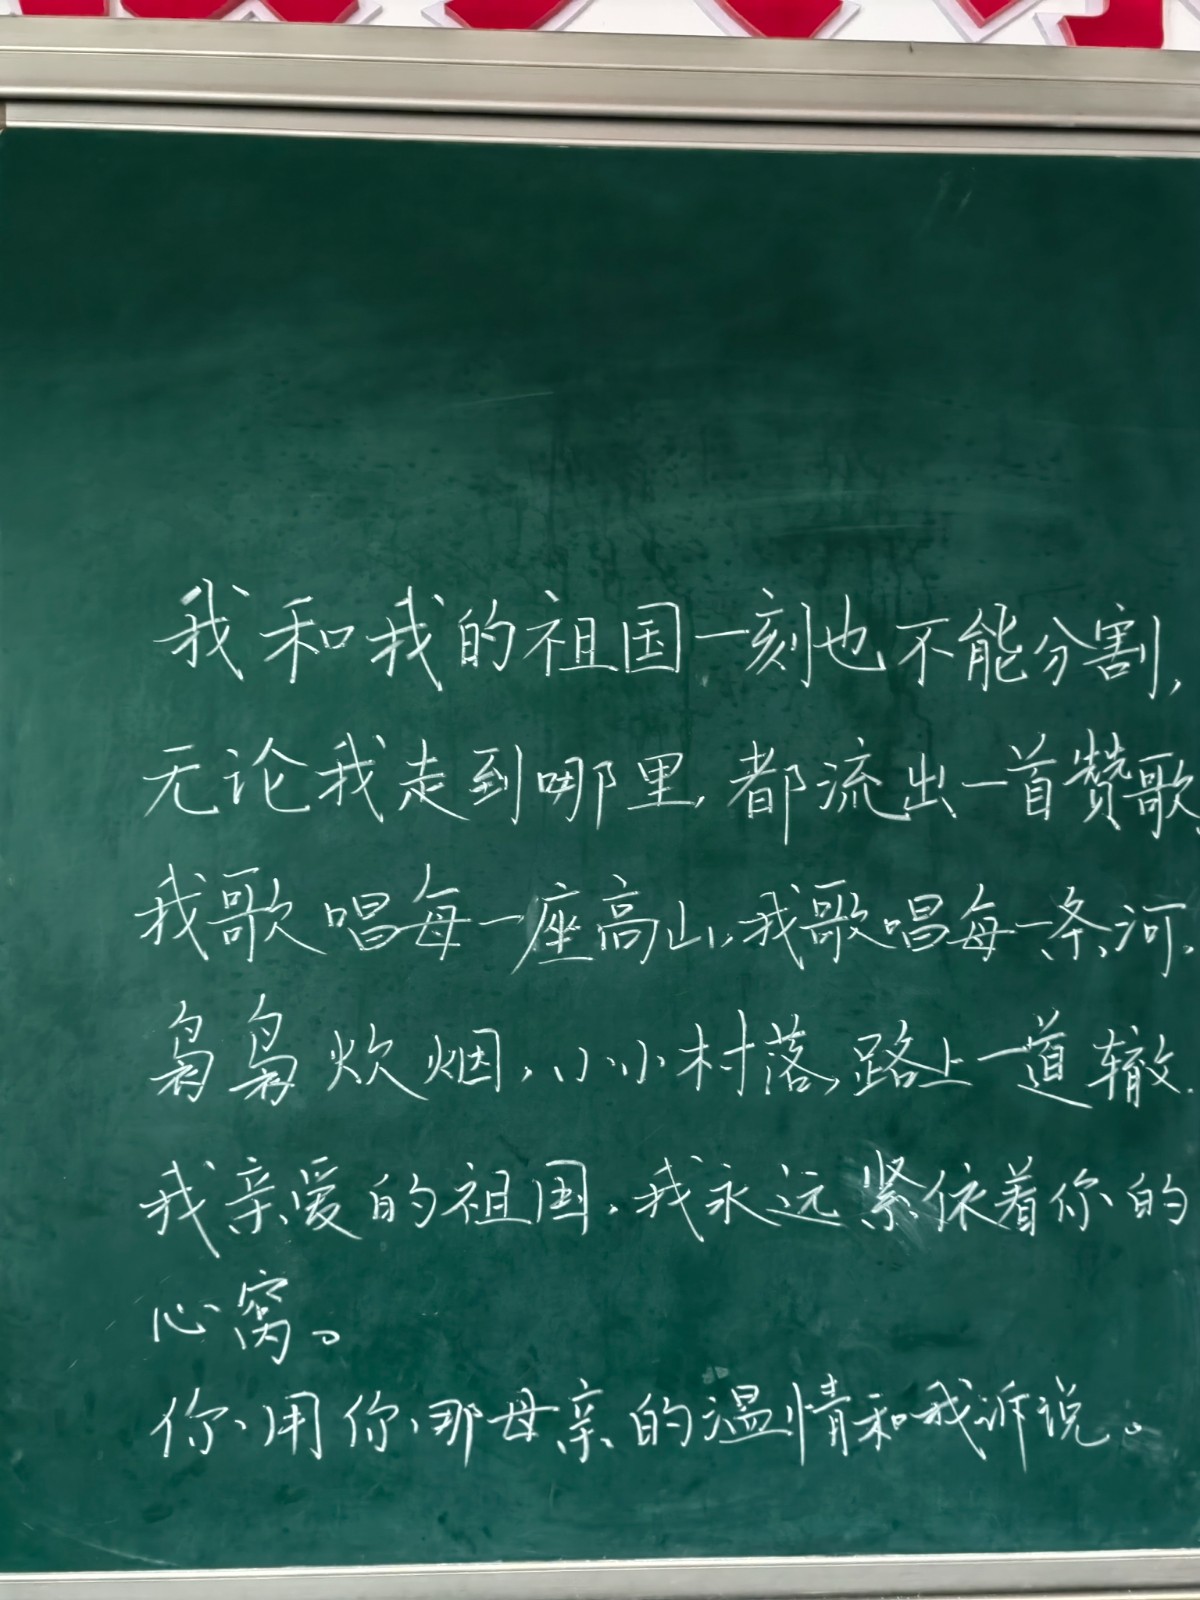 我和我的祖国一刻也不能分割,
无论我走到哪里,都流出一首赞歌
我歌唱每一座高山,我歌唱每一条河,
袅袅炊烟,小小村落,路上一道辙.
我亲爱的祖国,我永远紧依着你的
心窝。
你用你那母亲的温情和我诉说。